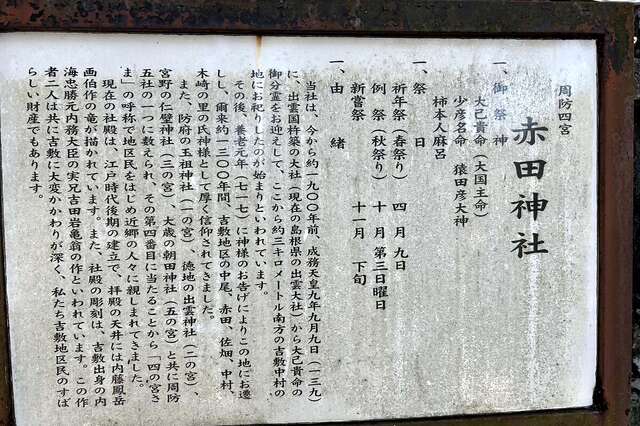 周防四宮
赤田神社
一、御祭神
大己貴命（大国主命）
少彦名命　猿田彦大神
柿本人麻呂
一、祭　日
祈年祭（春祭り）　四月九日
例　祭（秋祭り）　十月第三日曜日
新嘗祭　十一月　下旬
一、由　緒
当社は、今から約一九〇〇年前、成務天皇九年九月九日（一三九）
に、出雲国杵築の大社（現在の島根県の出雲大社）から大己貴命の
御分霊をお迎えして、ここから約三キロメートル南方の吉敷中村の
地にお祀りしたのが始まりといわれています。
その後、養老元年（七一七）に神様のお告げによりこの地にお遷
しし、爾来約一三〇〇年間、吉敷地区の中尾、赤田、佐畑、中村、
木崎の里の氏神様として厚く信仰されてきました。
また、防府の玉祖神社（一の宮）、徳地の出雲神社（二の宮）、
宮野の仁壁神社（三の宮）、大歳の朝田神社（五の宮）と共に周防
五社の一つに数えられ、その第四番目に当たることから「四の宮さ
ま」の呼称で地区民をはじめ近郷の人々に親しまれてきました。
現在の社殿は、江戸時代後期の建立で、拝殿の天井には内藤鳳岳
画伯作の竜が描かれています。また、社殿の彫刻は、吉敷出身の内
海忠勝元内務大臣の実兄吉田岩亀翁の作といわれています。この作
者二人は共に吉敷に大変かかわりが深く、私たち吉敷地区民のすば
らしい財産でもあります。